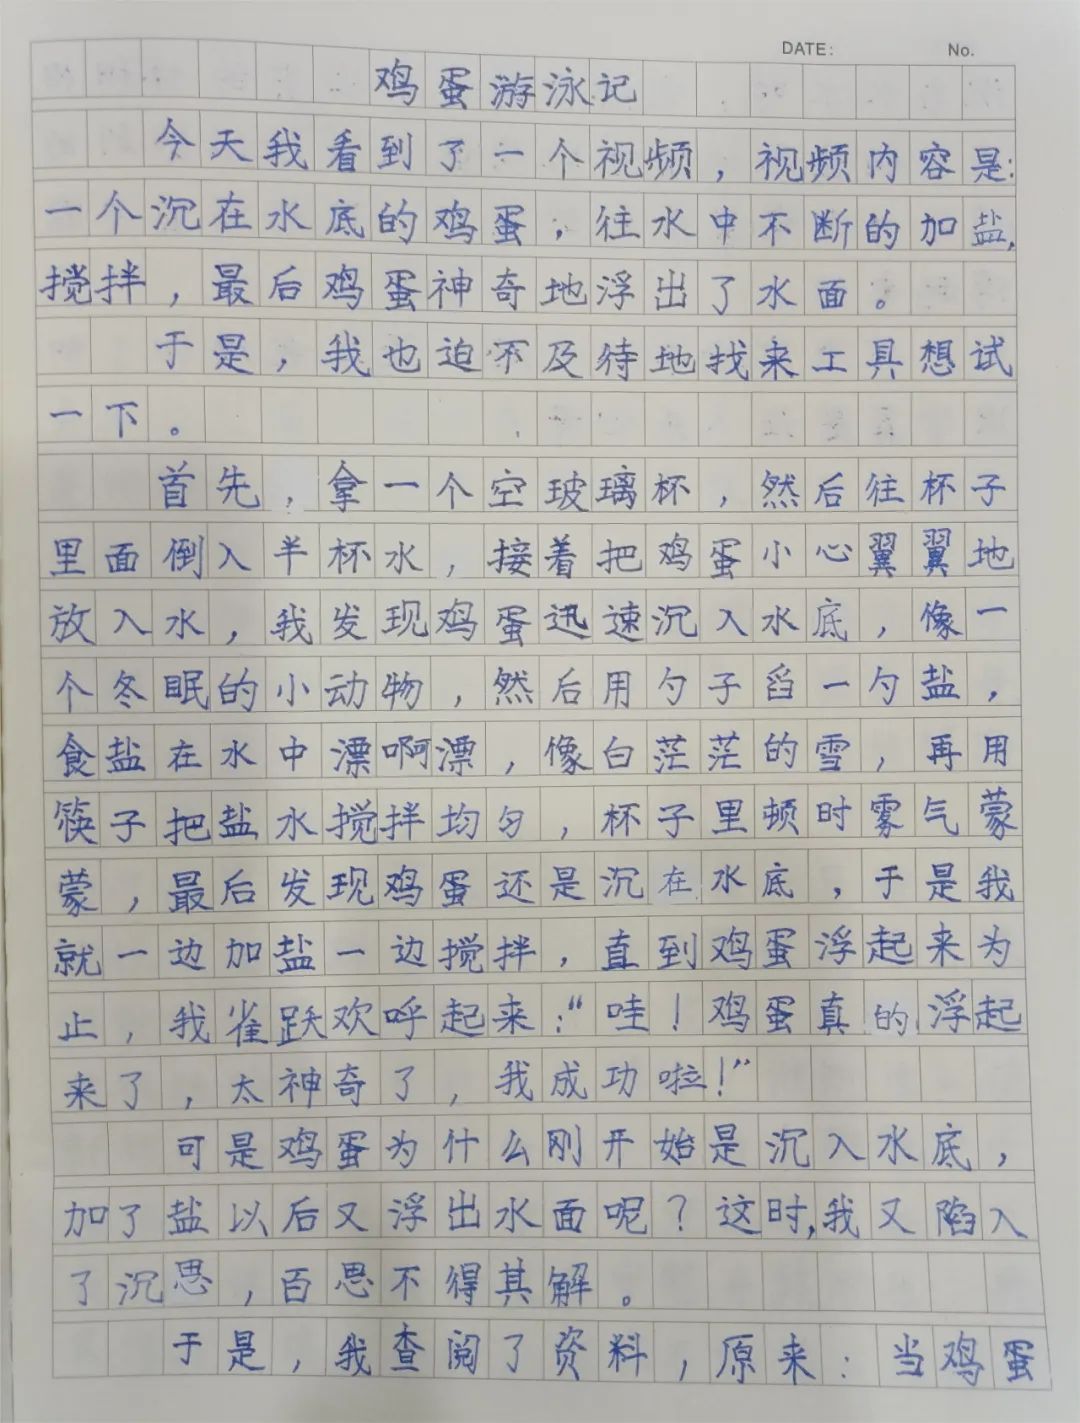 DATE: No.
鸡蛋游泳记
今天我看到了一个视频，视频内容是：
一个沉在水底的鸡蛋，往水中不断的加盐，
搅拌，最后鸡蛋神奇地浮出了水面。
于是，我也迫不及待地找来工具想试
一下。
首先，拿一个空玻璃杯，然后往杯子
里面倒入半杯水，接着把鸡蛋小心翼翼地
放入水，我发现鸡蛋迅速沉入水底，像一
个冬眠的小动物，然后用勺子舀一勺盐，
食盐在水中漂啊漂，像白茫茫的雪，再用
筷子把盐水搅拌均匀，杯子里顿时雾气蒙
蒙，最后发现鸡蛋还是沉在水底，于是我
就一边加盐一边搅拌，直到鸡蛋浮起来为
止，我雀跃欢呼起来：“哇！鸡蛋真的浮起
来了，太神奇了，我成功啦！”
可是鸡蛋为什么刚开始是沉入水底，
加了盐以后又浮出水面呢？这时，我又陷入
了沉思，百思不得其解。
于是，我查阅了资料，原来：当鸡蛋